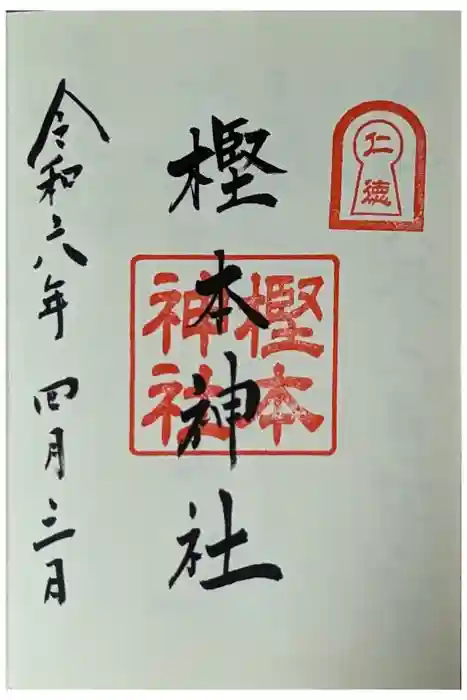 仁徳
樫本神社
樫本神社
令和六年 四月三日